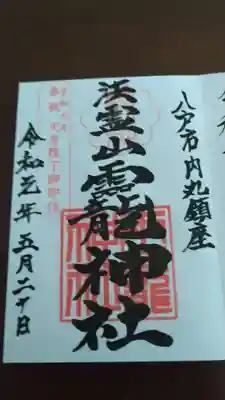 八戸市内丸鎮座
法霊山龗神社
令和元年 五月二十日